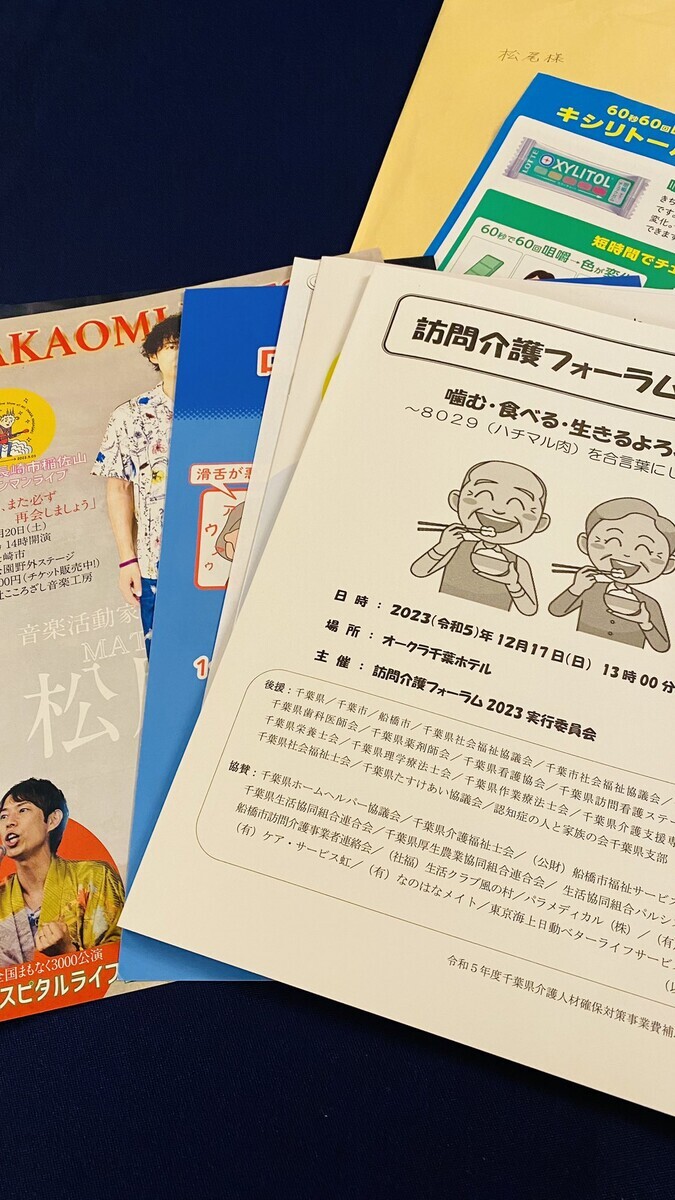 松尾様
60秒60回
キシリトール
LOTTE
XYLITOL
60秒で60回咀嚼→色が変化
短時間でチェ
きち
です。
変化。
できます
AKAOMI
長崎市稲佐山
ワンマンライブ
、また必ず
再会しましょう」
月20日(土)
14時開演
崎市
公園野外ステージ
00円(チケット販売中)
社こころざし音楽工房
音楽活動家
MAT
松
全国まもなく3000公演
スピタルライブ
滑舌が悪
ア
ウ
ウ
訪問介護フォーラム
噛む・食べる・生きるよろ
～8029(ハチマル肉)を合言葉にし
日 時 : 2023(令和5)年 12月17日(日) 13時00分
場 所 : オークラ千葉ホテル
主 催 : 訪問介護フォーラム 2023 実行委員会
後援:千葉県/千葉市/船橋市/千葉県社会福祉協議会/千葉市社会福祉協議会/
千葉県歯科医師会/千葉県薬剤師会/千葉県看護協会/千葉県訪問看護ステー
千葉県栄養士会/千葉県理学療法士会/千葉県作業療法士会/千葉県介護支援専
千葉県社会福祉士会/千葉県たすけあい協議会/認知症の人と家族の会千葉県支部
協賛:千葉県ホームヘルパー協議会/千葉県介護福祉士会/(公財)船橋市福祉サービス
千葉県生活協同組合連合会/千葉県厚生農業協同組合連合会/生活協同組合パルシ
船橋市訪問介護事業者連絡会/(社福)生活クラブ風の村/パラメディカル(株)/(有)
(有)ケア・サービス虹/(有)なのはなメイト/東京海上日動ベターライフサービ
(以
令和5年度千葉県介護人材確保対策事業費補